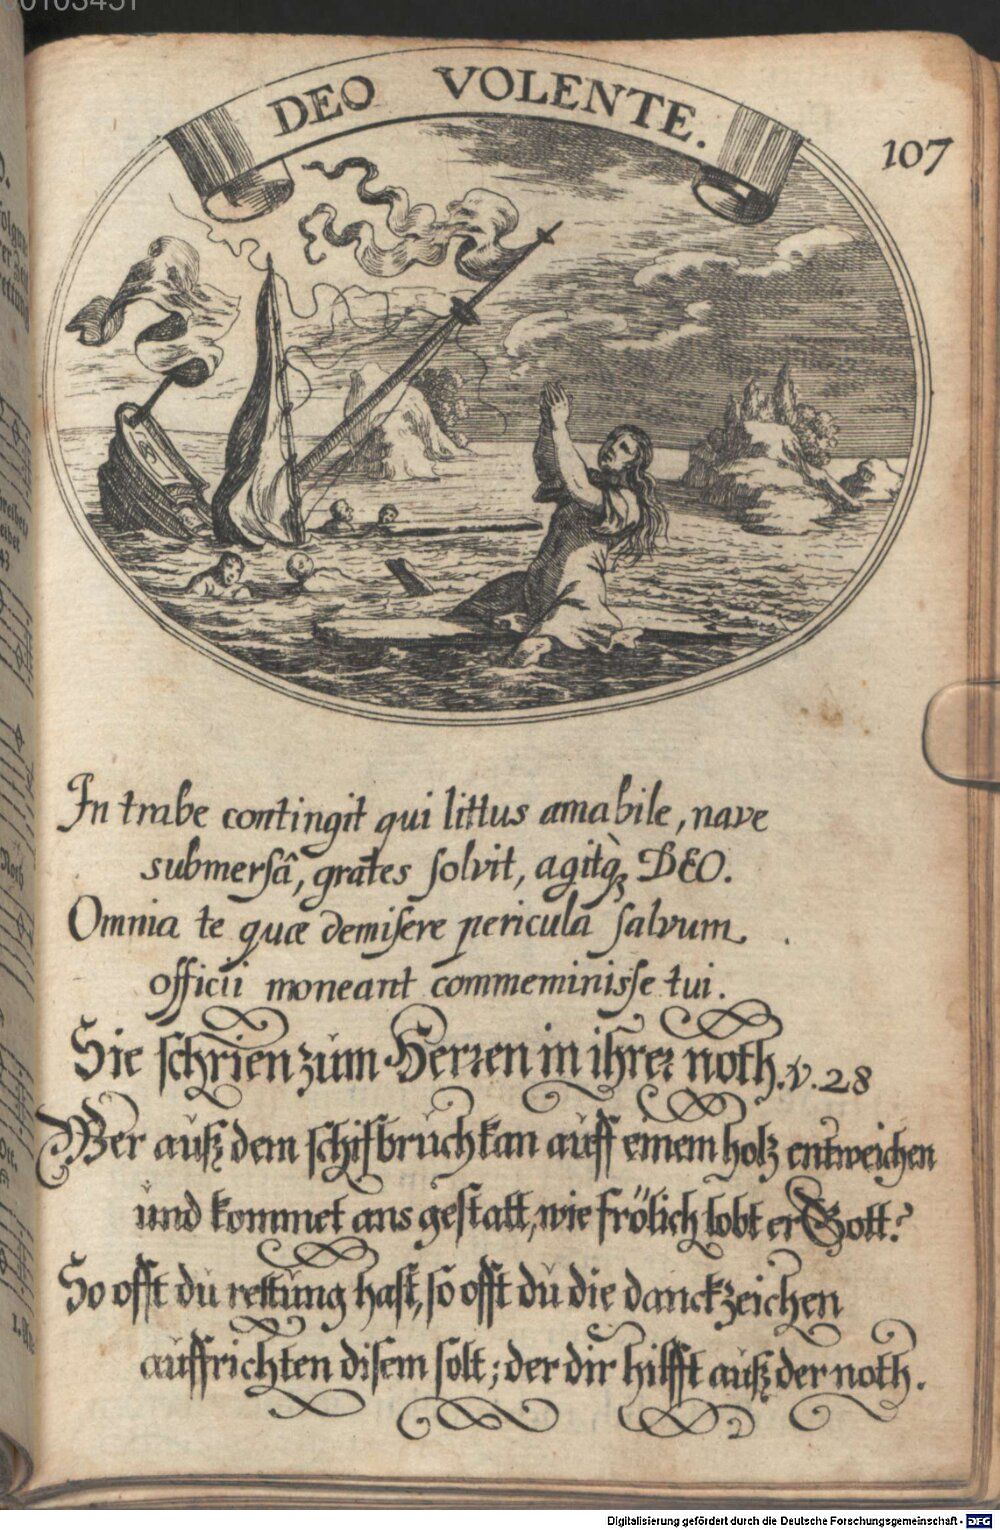 DEO VOLENTE.
107
In trabe contingit qui littus amabile, nave
submersâ, grates solvit, agitq̀ꝫ DEO.
Omnia te quæ demisere pericula salvum
officii moneant commeminisse tui.
Sie schrien zum Herren in ihrer noth. v. 28
Wer auß dem schifbruch kan auff einem holz entweichen
und kommet ans gestatt, wie frölich lobt er Gott?
So offt du rettung hast, so offt du die danckzeichen
auffrichten disem solt; der dir hilfft auß der noth.
Digitalisierung gefördert durch die Deutsche Forschungsgemeinschaft - DFG